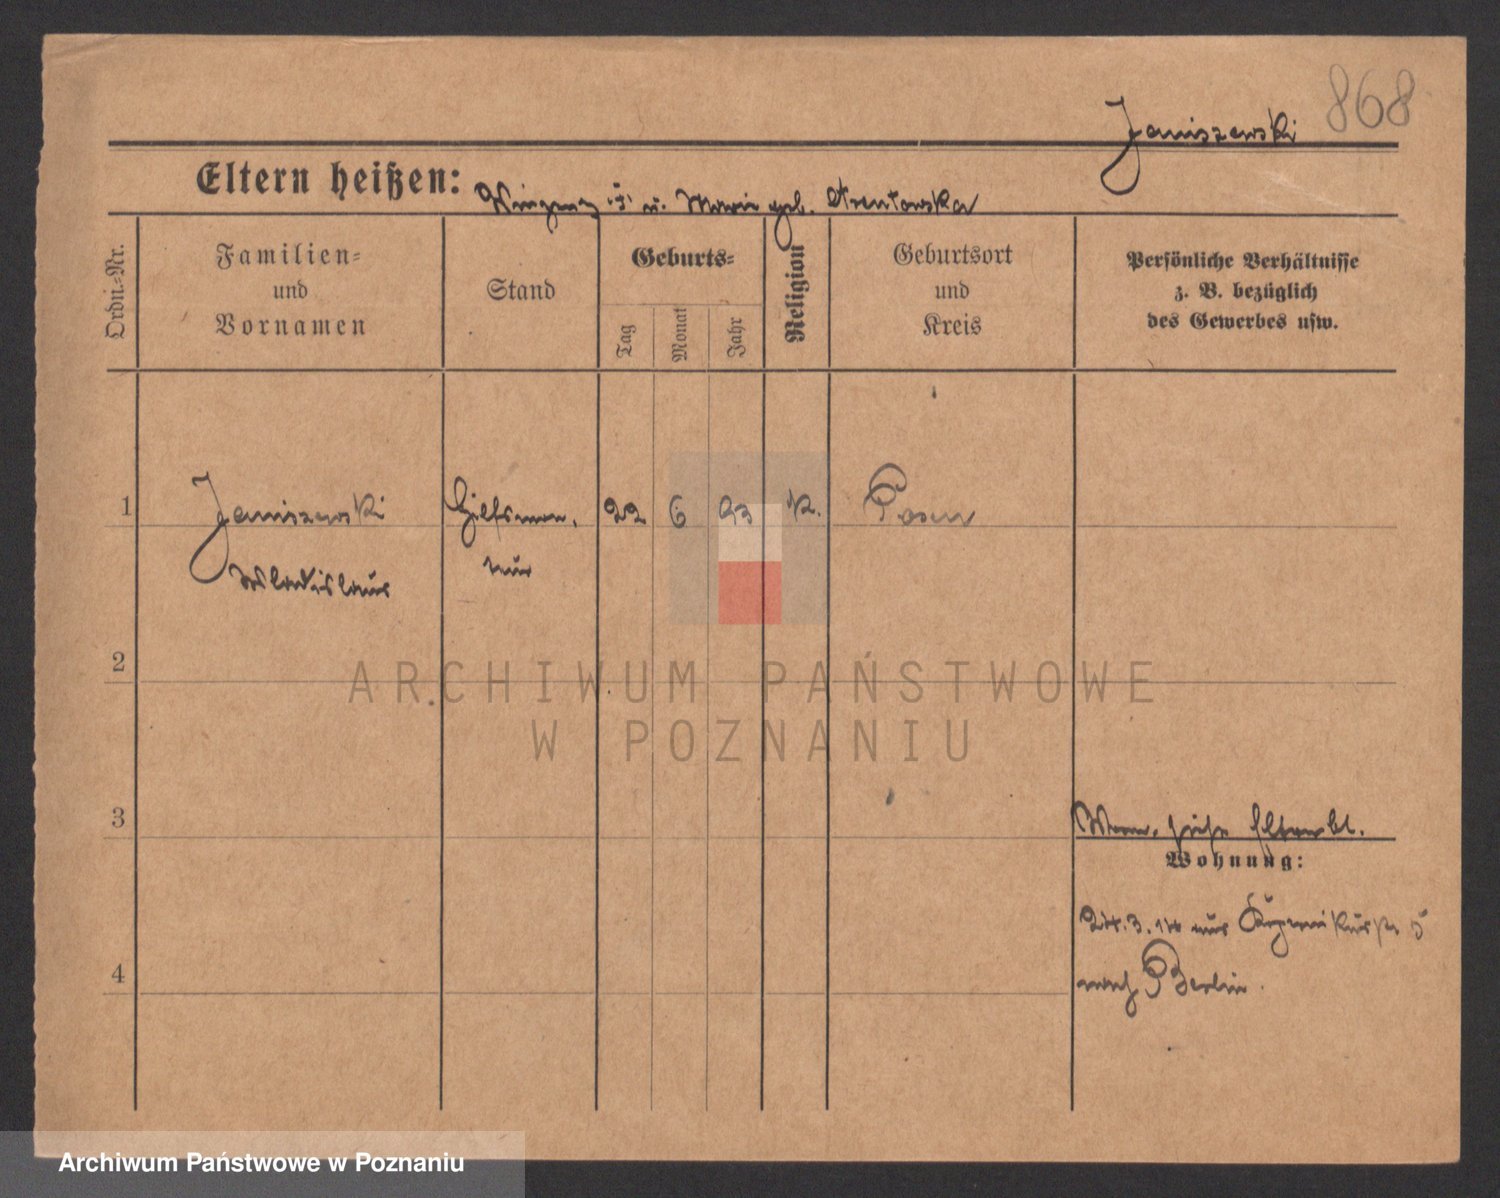 868
Janiszewski
Eltern heißen: Vinzenz † u. Marie geb. Arentowska
Ordn=Nr.
Familien=
und
Vornamen
Stand
Geburts=
Tag
Monat
Jahr
Religion
Geburtsort
und
Kreis
Persönliche Verhältnisse
z. B. bezüglich
des Gewerbes usw.
1 Janiszewski Hilfsmon. 22 6 93 k. Posen
Wladislaus
2
3
Verm. siehe Elternbl.
Wohnung:
24.3.14 aus
4
nach Berlin.
ARCHIWUM PAŃSTWOWE
W POZNANIU
Archiwum Państwowe w Poznaniu